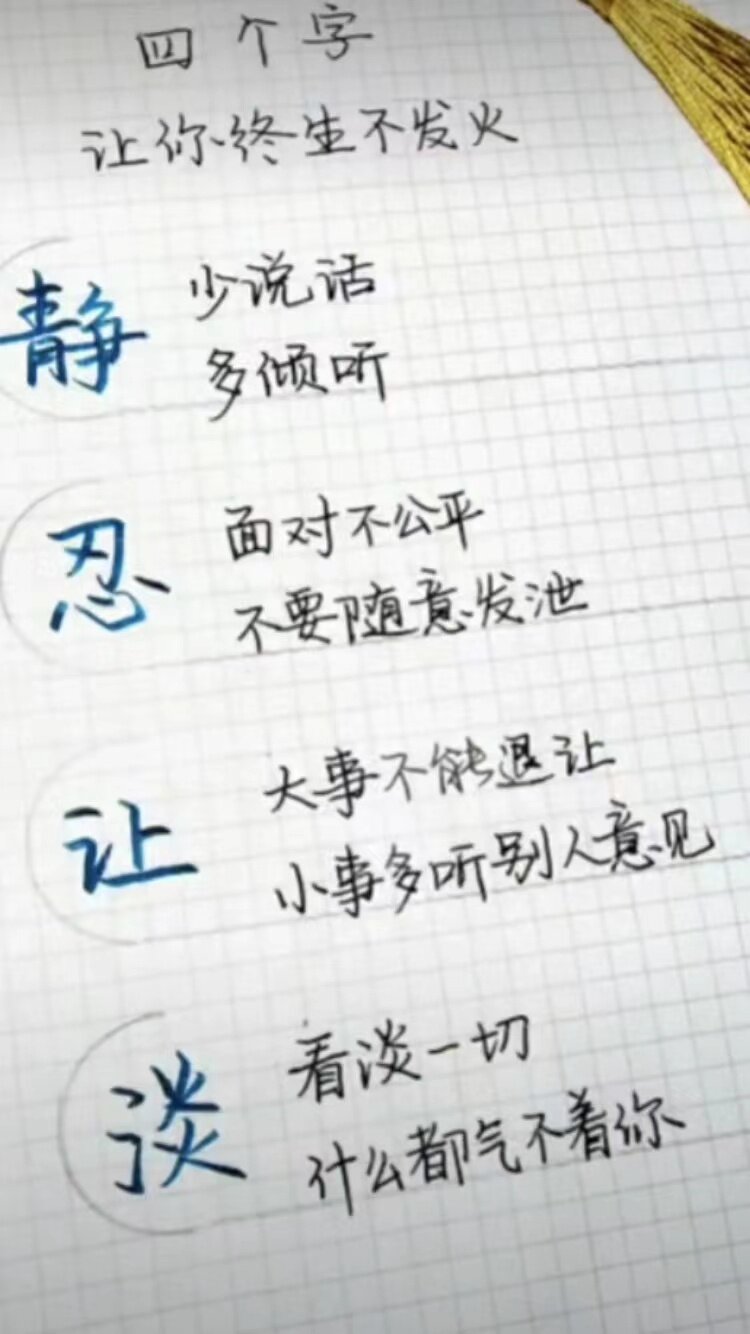 四个字
让你终生不发火
静
少说话
多倾听
忍
面对不公平
不要随意发泄
让
大事不能退让
小事多听别人意见
淡
看淡一切
什么都气不着你